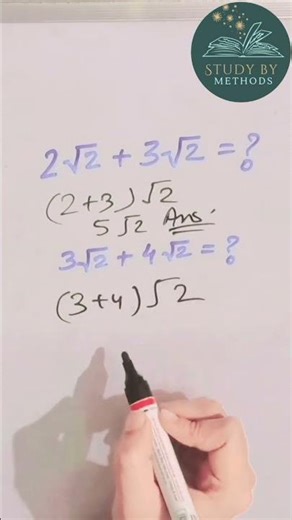 STUDY BY
METHODS
2√2 + 3√2 = ?
(2+3)√2
5√2 Ans:
3√2 + 4√2 = ?
(3+4)√2